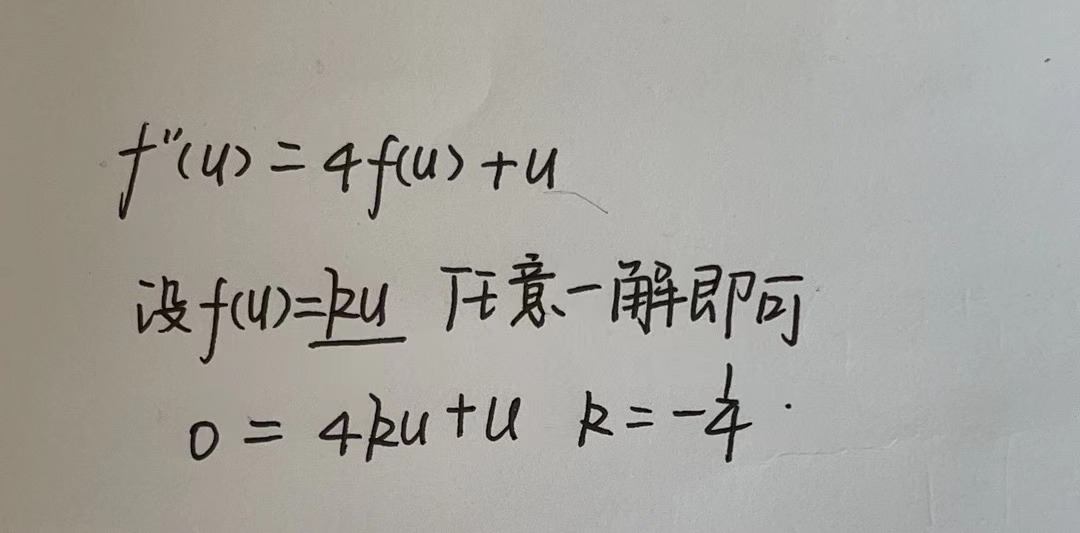 f''(u) = 4f(u) + u
设 f(u) = ku 任意一解即可
0 = 4ku + u k = -1/4.